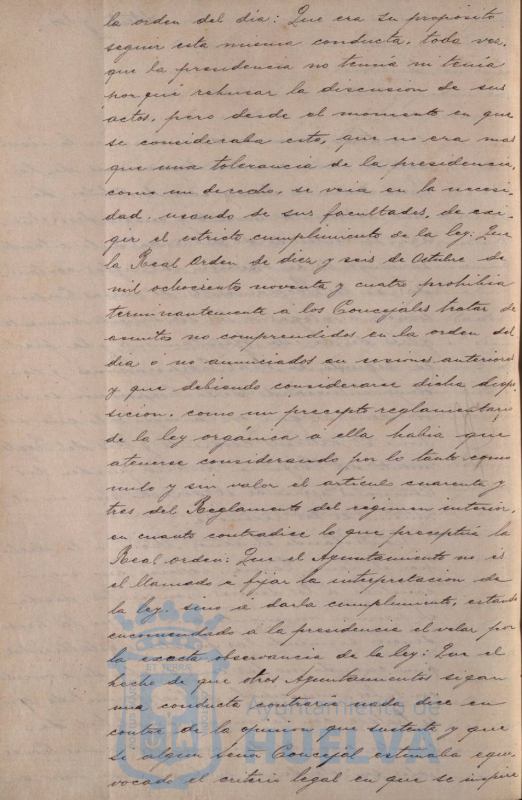 la orden del dia: Que era su proposito
seguir esta misma conducta, toda vez,
que la presidencia no tenia ni tenia
porqué rehusar la discusion de sus
actos, pero desde el momento en que
se consideraba esto, que no era mas
que una tolerancia de la presidencia,
como un derecho, se veia en la necesi-
dad, usando de sus facultades, de exi-
gir el estricto cumplimiento de la ley: Que
la Real Orden de diez y seis de Octubre de
mil ochocientos noventa y cuatro prohibia
terminantemente á los Concejales tratar de
asuntos no comprendidos en la orden del
dia ó no anunciados en sesiones anteriores
y que debiendo considerarse dicha dispo-
sicion, como un precepto reglamentario
de la ley orgánica a ella habia que
atenerse considerando por lo tanto como
nulo y sin valor el artículo cuarenta y
tres del Reglamento del régimen interior,
en cuanto contradice lo que preceptúa la
Real orden: Que el Ayuntamiento no es
el llamado a fijar la interpretacion de
la ley, sino á darla cumplimiento, estando
encomendado á la presidencia el velar por
la exacta observancia de la ley: Que el
hecho de que otros Ayuntamientos sigan
una conducta contraria nada dice en
contra de la opinion que sustenta y que
si algun Señor Concejal estimaba equi-
vocado el criterio legal en que se inspira
Ayuntamiento de
HUELVA